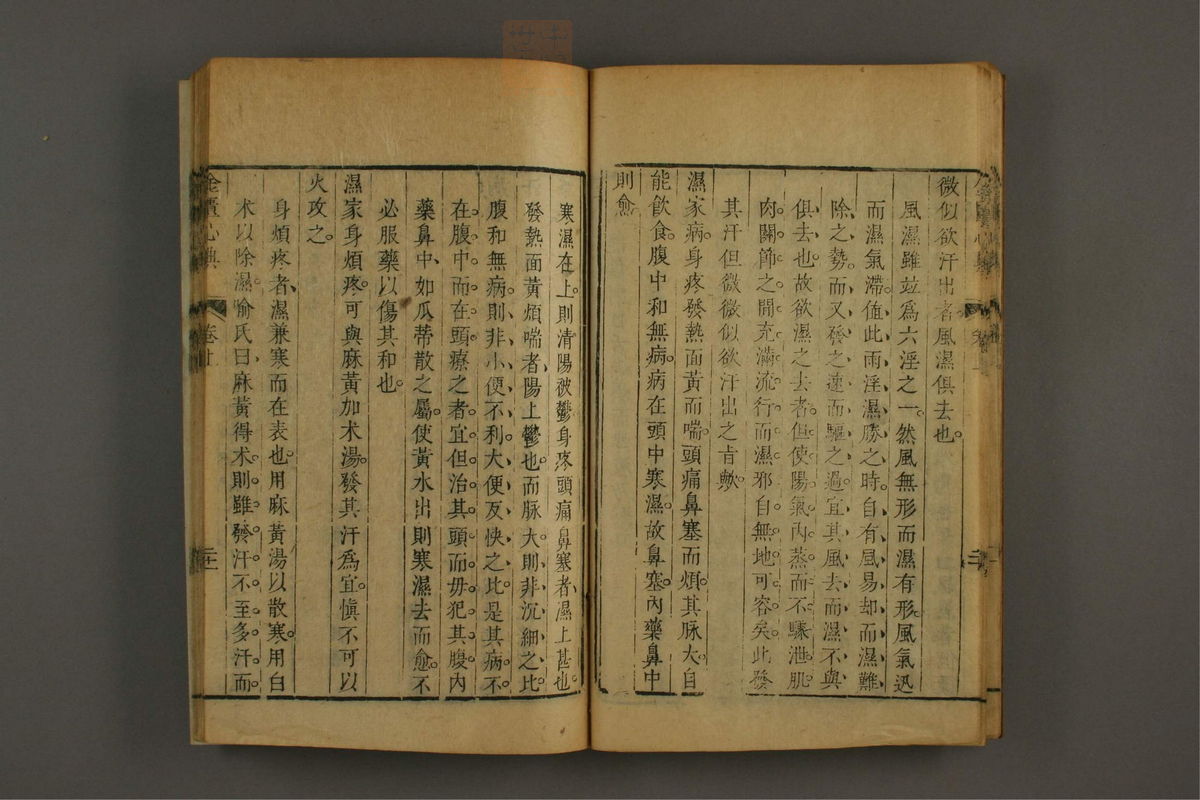 微似欲汗出者風濕俱去也
風濕雖並爲六淫之一然風無形而濕有形風氣迅
而濕氣滯值此雨淫濕勝之時自有風易却而濕難
除之勢而又發之速而驅之過宜其風去而濕不與
俱去也故欲濕之去者但使陽氣內蒸而不驟泄肌
肉關節之間充滿流行而濕邪自無地可容矣此發
其汗但微微似欲汗出之旨歟
濕家病身疼發熱面黃而喘頭痛鼻塞而煩其脉大自
能飲食腹中和無病病在頭中寒濕故鼻塞內藥鼻中
則愈
寒濕在上則清陽被鬱身疼頭痛鼻塞者濕上甚也
發熱面黃煩喘者陽上鬱也而脉大則非沉細之比
腹和無病則非小便不利大便反快之比是其病不
在腹中而在頭療之者宜但治其頭而毋犯其腹內
藥鼻中如瓜蒂散之屬使黃水出則寒濕去而愈不
必服藥以傷其和也
濕家身煩疼可與麻黃加术湯發其汗爲宜愼不可以
火攻之
身煩疼者濕兼寒而在表也用麻黃湯以散寒用白
术以除濕喻氏曰麻黃得术則雖發汗不至多汗而
金匱心典
卷上